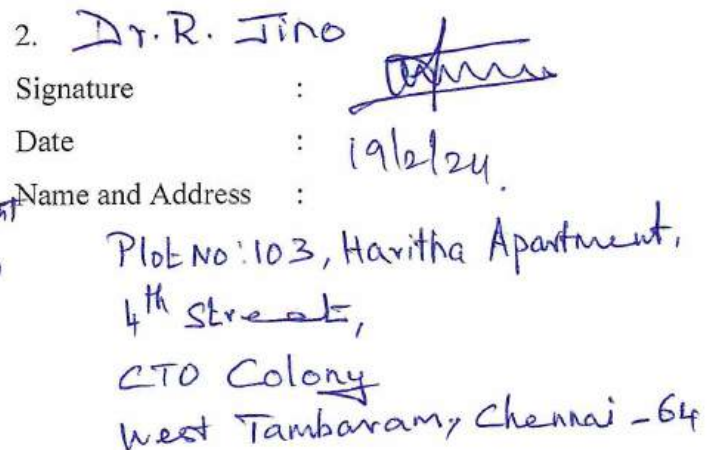 2. Dr. R. Jino
Signature :
Date : 19/2/24.
Name and Address :
Plot No: 103, Haritha Apartment,
4th Street,
CTO Colony
West Tambaram, Chennai - 64